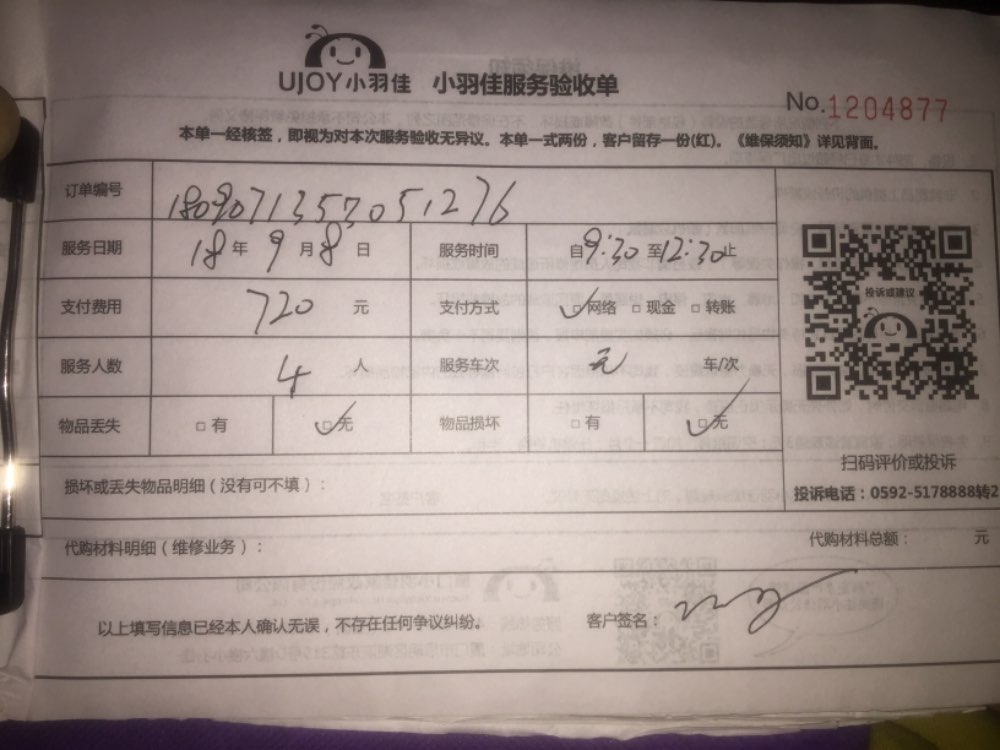 UJOY小羽佳 小羽佳服务验收单
No.1204877
本单一经核签，即视为对本次服务验收无异议。本单一式两份，客户留存一份(红)。《维保须知》详见背面。
订单编号 1809071357051276
服务日期 18年9月8日 服务时间 自9:30至12:30止
投诉或建议
支付费用 720 元 支付方式 ☑网络 □现金 □转账
服务人数 4 人 服务车次 无 车/次
物品丢失 □有 ☑无 物品损坏 □有 ☑无
扫码评价或投诉
损坏或丢失物品明细（没有可不填）：
投诉电话：0592-5178888转2
代购材料明细（维修业务）： 代购材料总额： 元
以上填写信息已经本人确认无误，不存在任何争议纠纷。 客户签名：